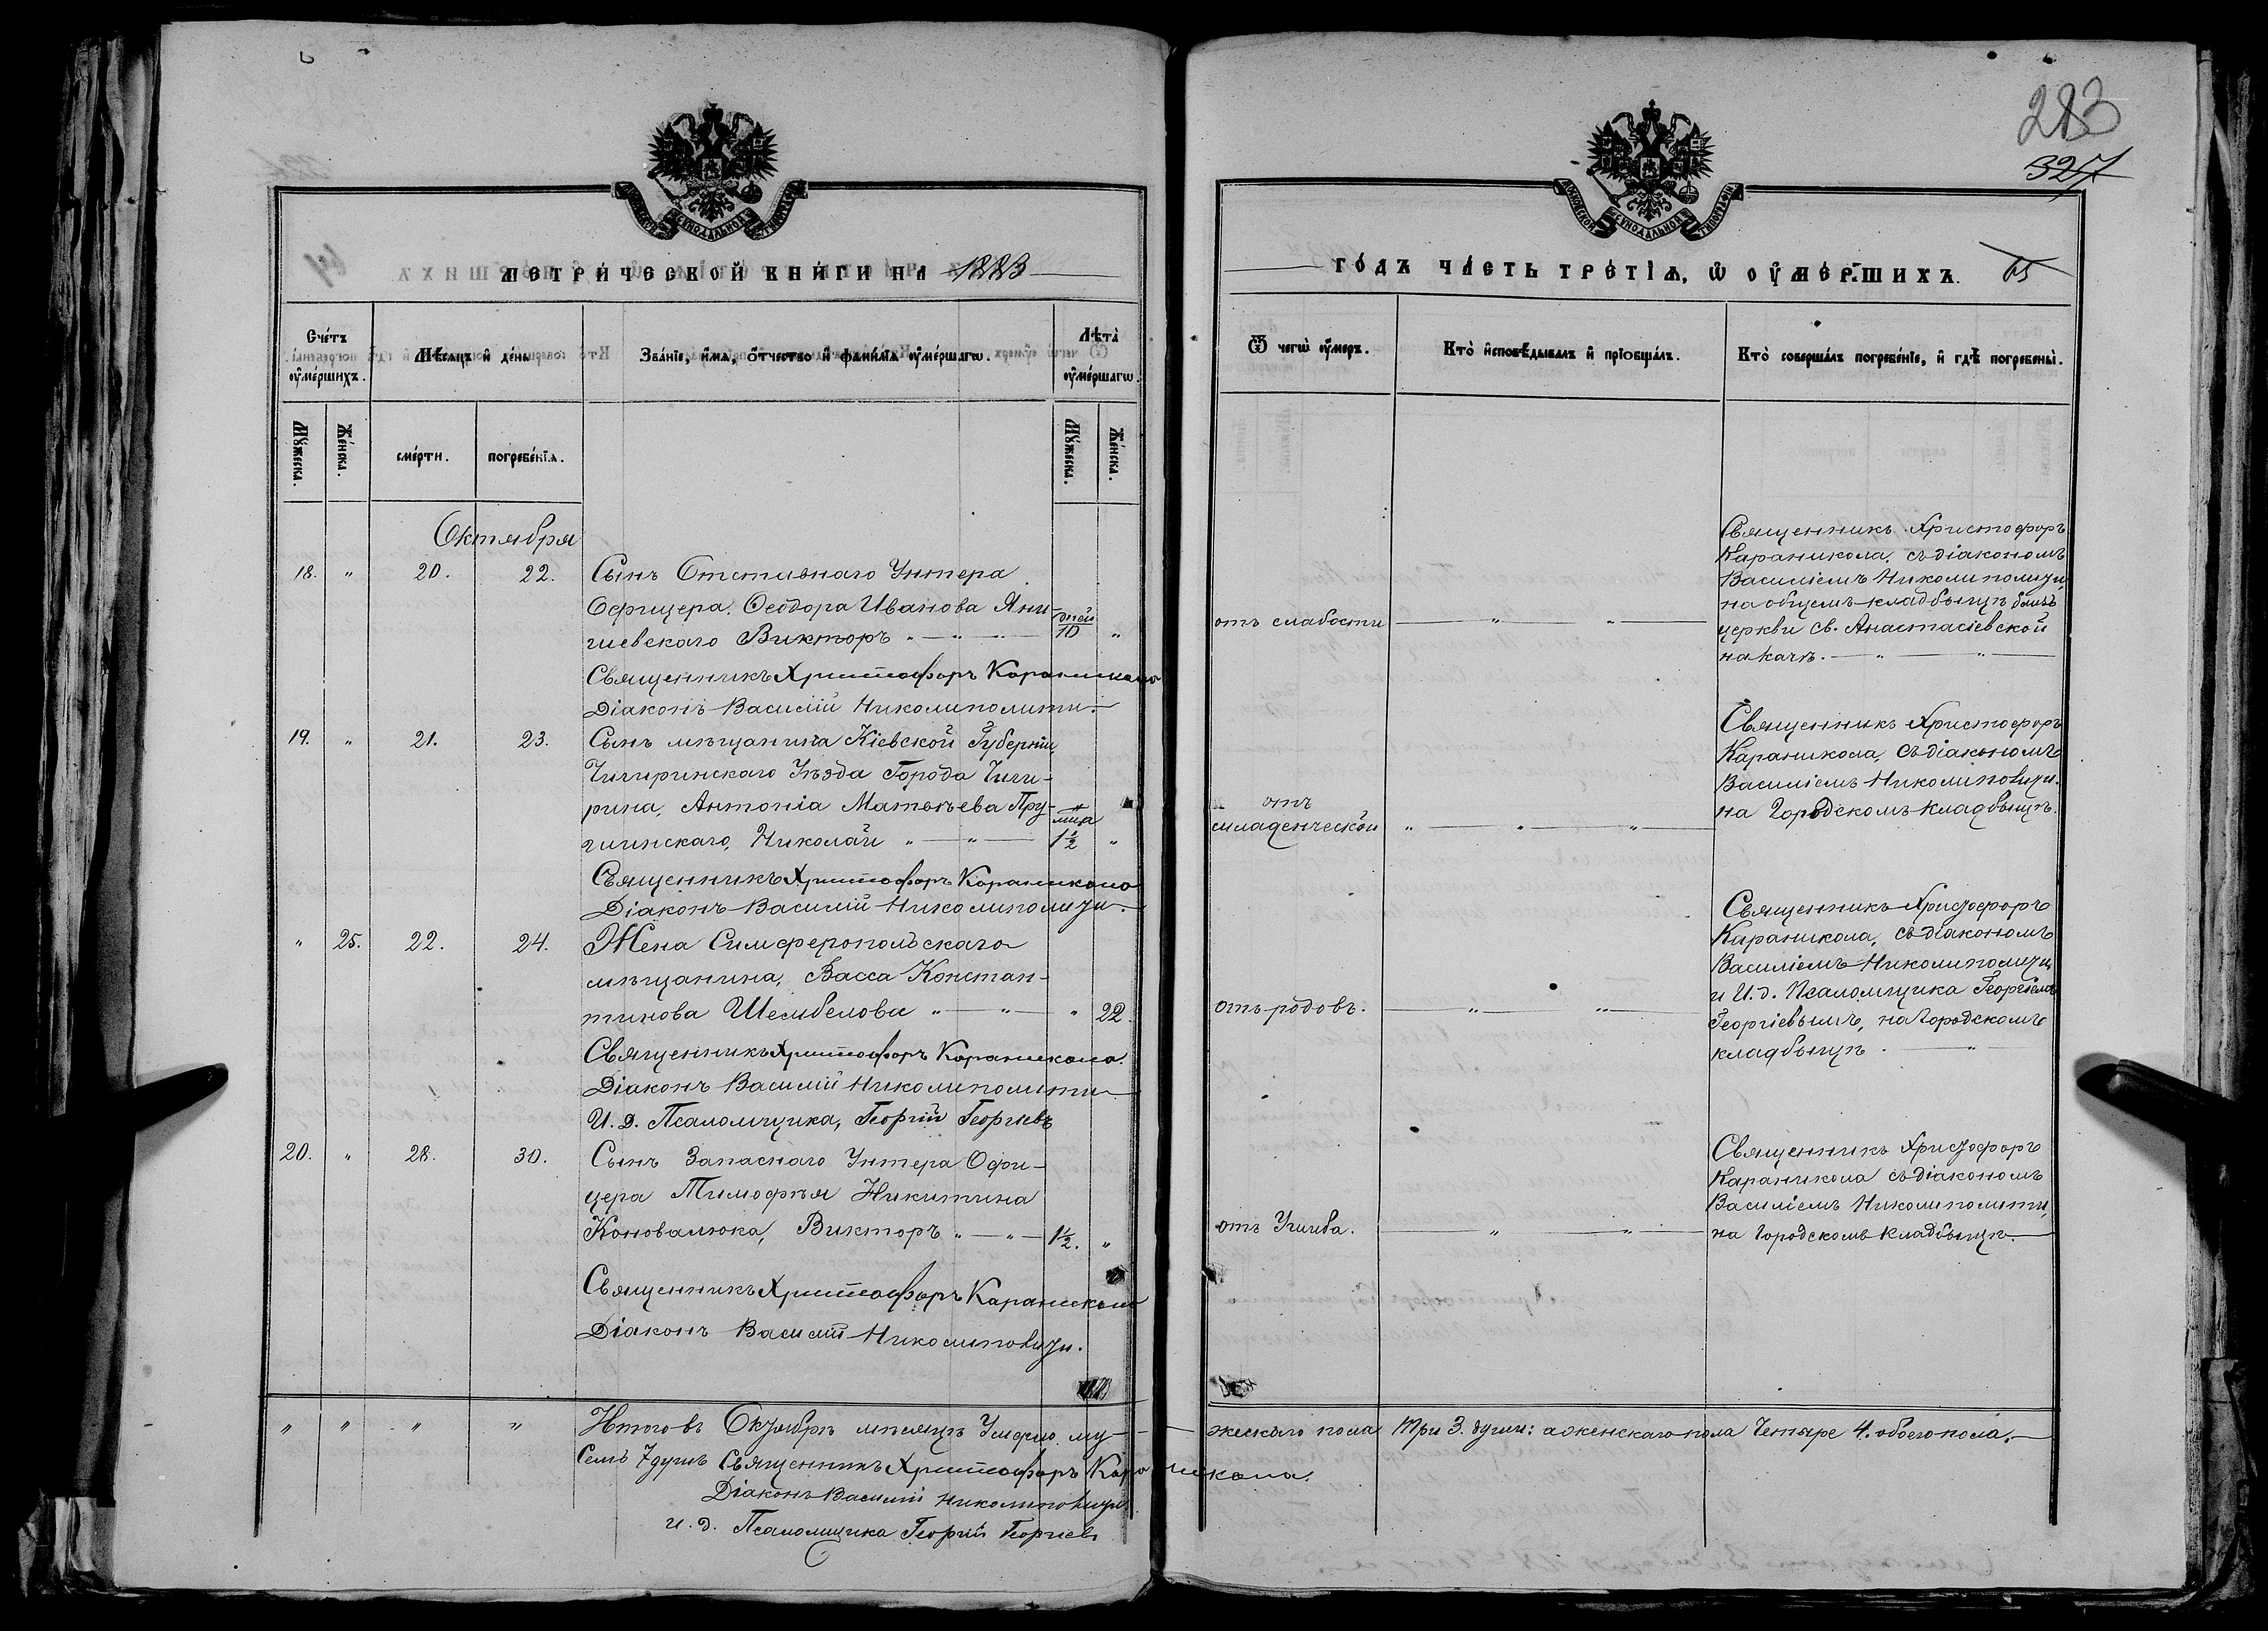 283
327
МОСКОВСКОЙ СУНОДАЛЬНОЙ ТИПОГРАФІИ
МЕТРИЧЕСКОЙ КНИГИ НА 1883
Счетъ оумершихъ.
Мѣсяцъ и день
Званіе, имя, отчество и фамилія оумершагѡ.
Лѣта оумершагѡ.
Мужеска.
Женска.
смерти.
погребенїя.
Мужеска.
Женска.
Октября
18. " 20. 22. Сынъ Отставнаго Унтера
Офицера, Ѳеодора Иванова Яни-
шевскаго Викторъ " — " — дней 10 "
Священникъ Христофоръ Караникола
Діаконъ Василій Николиполити.
19. " 21. 23. Сынъ мѣщанина Кіевской Губерніи,
Чигиринскаго Уѣзда Города Чиги-
рина, Антонія Матвѣева Пру-
шинскаго, Николай " — " — м-ца 1½ "
Священникъ Христофоръ Караникола
Діаконъ Василій Николиполити.
" 25. 22. 24. Жена Симферопольскаго
мѣщанина, Васса Констан-
тинова Шембелова " — " — " 22.
Священникъ Христофоръ Караникола.
Діаконъ Василій Николиполити
И. д. Псаломщика, Георгій Георгіевъ
20. " 28. 30. Сынъ Запаснаго Унтера Офи-
цера Тимофѣя Никитина
Коновалюка, Викторъ " — " — 1½. "
Священникъ Христофоръ Караникола
Діаконъ Василій Николиполити.
" " " " Итого въ Октябрѣ мѣсяцѣ Умерло му-
Семь 7 душъ Священникъ Христофоръ Караникола.
Діаконъ Василій Николиполити.
и. д. Псаломщика Георгій Георгіевъ
МОСКОВСКОЙ СУНОДАЛЬНОЙ ТИПОГРАФІИ
ГОДЪ ЧАСТЬ ТРЕТІЯ, Ѡ ОУМЕРШИХЪ. 65
Ѿ чегѡ оумеръ.
Кто исповѣдывалъ и прїобщалъ.
Кто совершалъ погребенїе, и гдѣ погребены.
Священникъ Христофоръ
Караникола, съ діакономъ
Василіемъ Николиполити,
на общемъ кладбищѣ близъ
отъ слабости — " — " —
церкви св. Анастасіевской
на Качѣ. — " — " —
Священникъ Христофоръ
Караникола, съ діакономъ
Василіемъ Николиполити.
на Городскомъ кладбищѣ.
отъ
младенческой " — " — " —
Священникъ Христофоръ
Караникола, съ діакономъ
Василіемъ Николиполити,
и И. д. Псаломщика Георгіемъ
отъ родовъ. — " — " —
Георгіевымъ, на Городскомъ
кладбищѣ. — " —
Священникъ Христофоръ
Караникола съ діакономъ
Василіемъ Николиполити,
отъ Ушиба. — " — " —
на Городскомъ кладбищѣ.
жескаго пола Три 3. души: а женскаго пола Четыре 4. обоего пола.